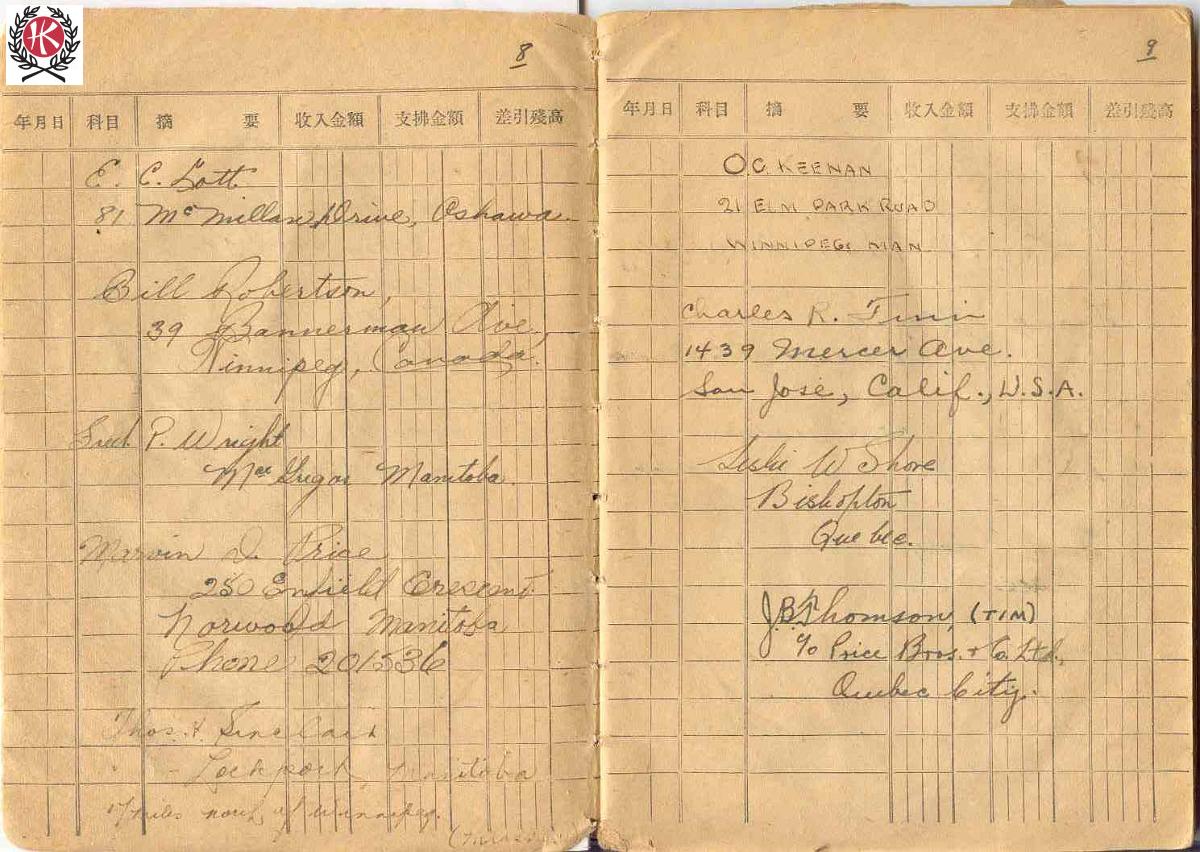 HK
8
年月日 科目 摘要 收入金額 支拂金額 差引殘高
E. C. Lott
81 McMillan Drive, Oshawa.
Bill Robertson,
39 Bannerman Ave,
Winnipeg, Canada.
P. Wright
Manitoba.
Marvin D. Price
250 Enfield Crescent
Norwood Manitoba
Phone 201536
Thos. Sinclair
Lockport, Manitoba
17 miles north of Winnipeg.
9
年月日 科目 摘要 收入金額 支拂金額 差引殘高
KEENAN
21 ELM PARK ROAD
WINNIPEG, MAN
Charles R. Finn
1439 Mercer Ave.
San Jose, Calif., U.S.A.
Leslie W Shore
Bishopton
Quebec.
J.B. Thomson, (TIM)
c/o Price Bros. & Co. Ltd.,
Quebec City.